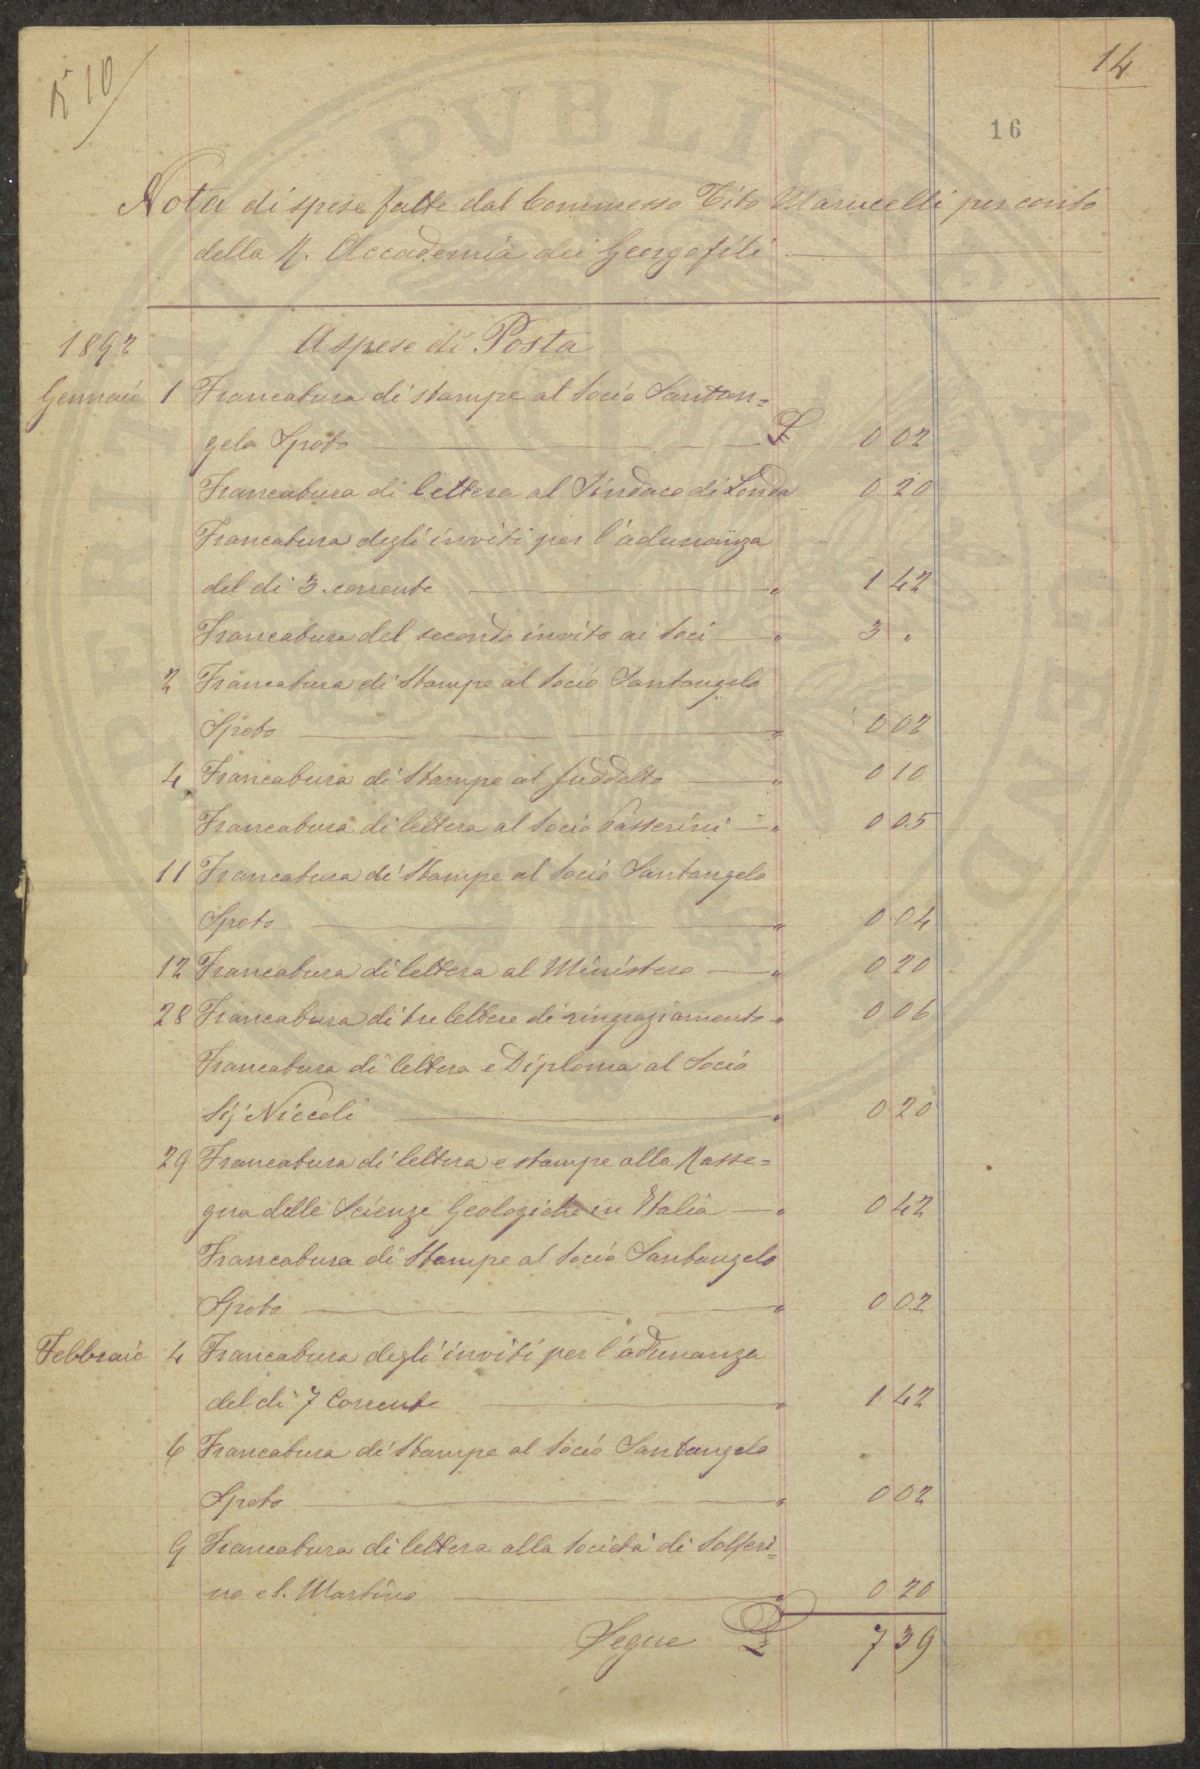 N° 10
14
16
Nota di spese fatte dal Commesso Tito Marucelli per conto
della R. Accademia dei Georgofili
1892 A spese di Posta
Gennaio 1 Francatura di stampe al Socio Santan=
gelo Spoto £ 0 02
Francatura di lettera al Sindaco di Londa 0 20
Francatura degli inviti per l'adunanza
del di 3. corrente " 1 42
Francatura del secondo invito ai Soci " 3 "
2 Francatura di Stampe al Socio Santangelo
Spoto " 0 02
4 Francatura di Stampe al suddetto " 0 10
Francatura di lettera al Socio Passerini " 0 05
11 Francatura di Stampe al Socio Santangelo
Spoto " 0 04
12 Francatura di lettera al Ministero " 0 20
28 Francatura di tre lettere di ringraziamento " 0 06
Francatura di lettera e Diploma al Socio
Sig Niccoli " 0 20
29 Francatura di lettera e stampe alla Rasse=
gna delle Scienze Geologiche in Italia " 0 42
Francatura di Stampe al Socio Santangelo
Spoto " 0 02
Febbraio 4 Francatura degli inviti per l'adunanza
del di 7 Corrente " 1 42
6 Francatura di Stampe al Socio Santangelo
Spoto " 0 02
9 Francatura di lettera alla Società di Solferi=
no e S. Martino " 0 20
Segue £ 7 39